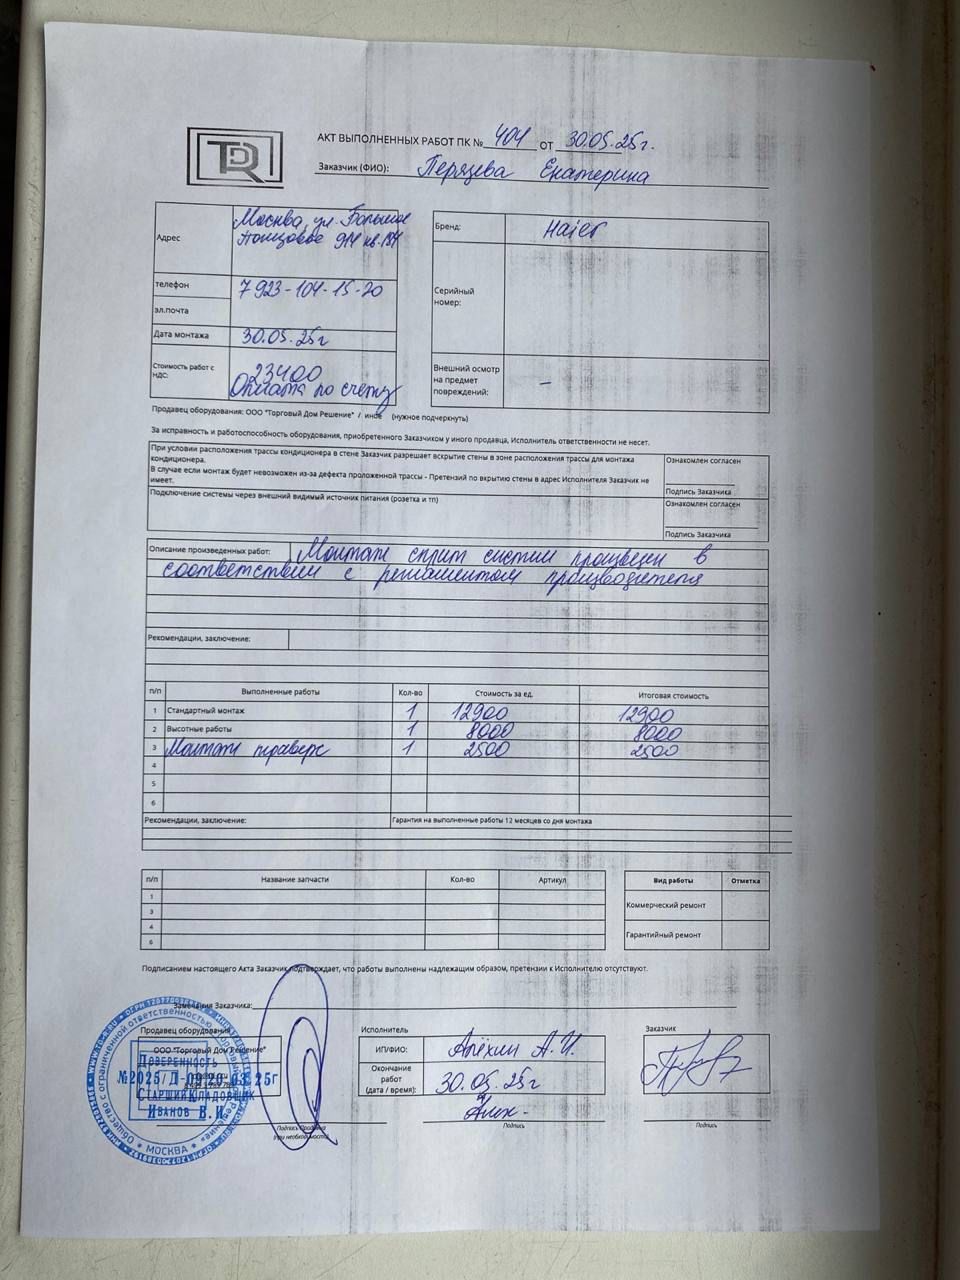 TDR
АКТ ВЫПОЛНЕННЫХ РАБОТ ПК № 404 ОТ 30.05.25г.
Заказчик (ФИО): Екатерина
Адрес
Москва, ул. Большое
кв.
Бренд: Haier
телефон 7 923-104-15-20
эл.почта
Серийный
номер:
Дата монтажа 30.05.25г
Стоимость работ с
НДС:
23400
Оплата по счету
Внешний осмотр
на предмет
повреждений:
–
Продавец оборудования: ООО "Торговый Дом Решение" / иное (нужное подчеркнуть)
За исправность и работоспособность оборудования, приобретенного Заказчиком у иного продавца, Исполнитель ответственности не несет.
При условии расположения трассы кондиционера в стене Заказчик разрешает вскрытие стены в зоне расположения трассы для монтажа
кондиционера.
В случае если монтаж будет невозможен из-за дефекта проложенной трассы - Претензий по вкрытию стены в адрес Исполнителя Заказчик не
имеет.
Ознакомлен согласен
Подпись Заказчика
Подключение системы через внешний видимый источник питания (розетка и тп)
Ознакомлен согласен
Подпись Заказчика
Описание произведенных работ: Монтаж сплит систем произведен в
соответствии с регламентом производителя
Рекомендации, заключение:
п/п Выполненные работы Кол-во Стоимость за ед. Итоговая стоимость
1 Стандартный монтаж 1 12900 12900
2 Высотные работы 1 8000 8000
3 Монтаж траверс 1 2500 2500
4
5
6
Рекомендации, заключение: Гарантия на выполненные работы 12 месяцев со дня монтажа
п/п Название запчасти Кол-во Артикул
1
3
4
6
Вид работы Отметка
Коммерческий ремонт
Гарантийный ремонт
Подписанием настоящего Акта Заказчик подтверждает, что работы выполнены надлежащим образом, претензии к Исполнителю отсутствуют.
Замечания Заказчика:
Продавец оборудования
ООО "Торговый Дом Решение"
Доверенность
Старший Кладовщик
Иванов В.И.
Общество с ограниченной ответственностью
МОСКВА
Подпись Продавца
(при необходимости)
Исполнитель
ИП/ФИО: Алёхин А.И.
Окончание
работ
(дата / время):
30.05.25г
Алех-
Подпись
Заказчик
Подпись